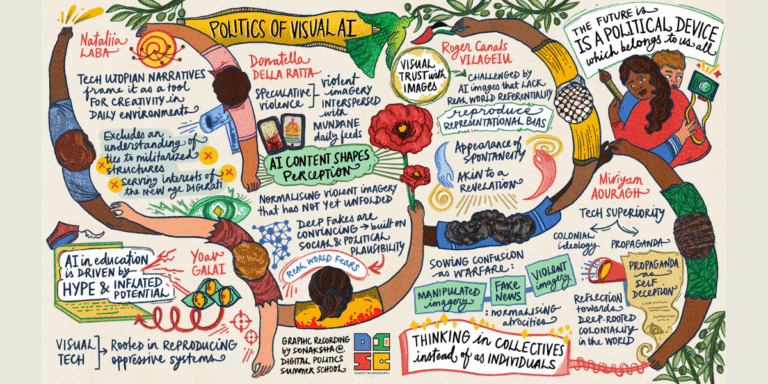 POLITICS OF VISUAL AI
Nataliia
LABA
TECH UTOPIAN NARRATIVES
frame it as a tool
FOR CREATIVITY in
DAILY ENVIRONMENTS
Excludes an
understanding of
ties to militarized
structures
Serving interests of
the new age DIGERATI
Donatella
DELLA RATTA
SPECULATIVE
violence
violent
imagery
INTERSPERSED
with
MUNDANE
daily feeds
AI CONTENT SHAPES
PERCEPTION
NORMALISING violent imagery
that has NOT yet UNFOLDED
DEEP FAKES are
CONVINCING → built on
SOCIAL & POLITICAL
PLAUSIBILITY
REAL WORLD FEARS
VISUAL
TRUST with
IMAGES
Roger Canals
VILAGELIU
CHALLENGED BY
AI images that LACK
REAL WORLD REFERENTIALITY
reproduce
REPRESENTATIONAL BIAS
Appearance of
SPONTANEITY
AKIN to a
REVELATION
THE FUTURE is
IS A POLITICAL DEVICE
which belongs to us all
Miriyam
AOURAGH
TECH SUPERIORITY
COLONIAL
ideology
PROPAGANDA
PROPAGANDA
as
SELF
DECEPTION
REFLECTION
towards
DEEP-ROOTED
COLONIALITY
in the WORLD
SOWING CONFUSION
as WARFARE:
MANIPULATED
imagery
FAKE
NEWS
VIOLENT
imagery
: normalising
atrocities
THINKING in COLLECTIVES
instead of as INDIVIDUALS
AI in education
is DRIVEN by
HYPE & INFLATED
POTENTIAL
Yoav
GALAI
VISUAL
TECH
Rooted in REPRODUCING
oppressive systems
GRAPHIC RECORDING
by SONAKSHA@
DIGITAL POLITICS
SUMMER SCHOOL